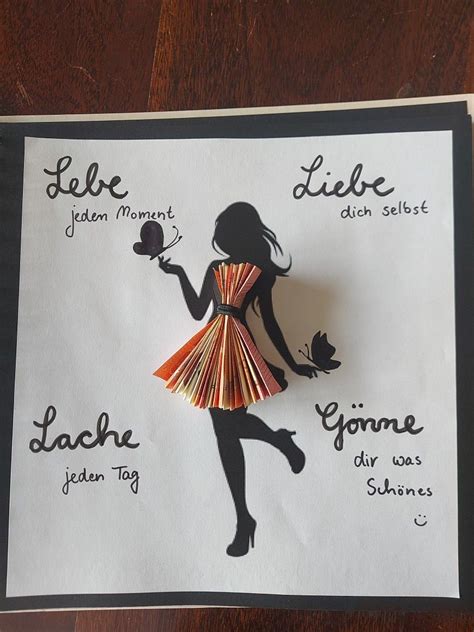 Lebe
jeden Moment
Liebe
dich selbst
Lache
jeden Tag
Gönne
dir was
Schönes
☺